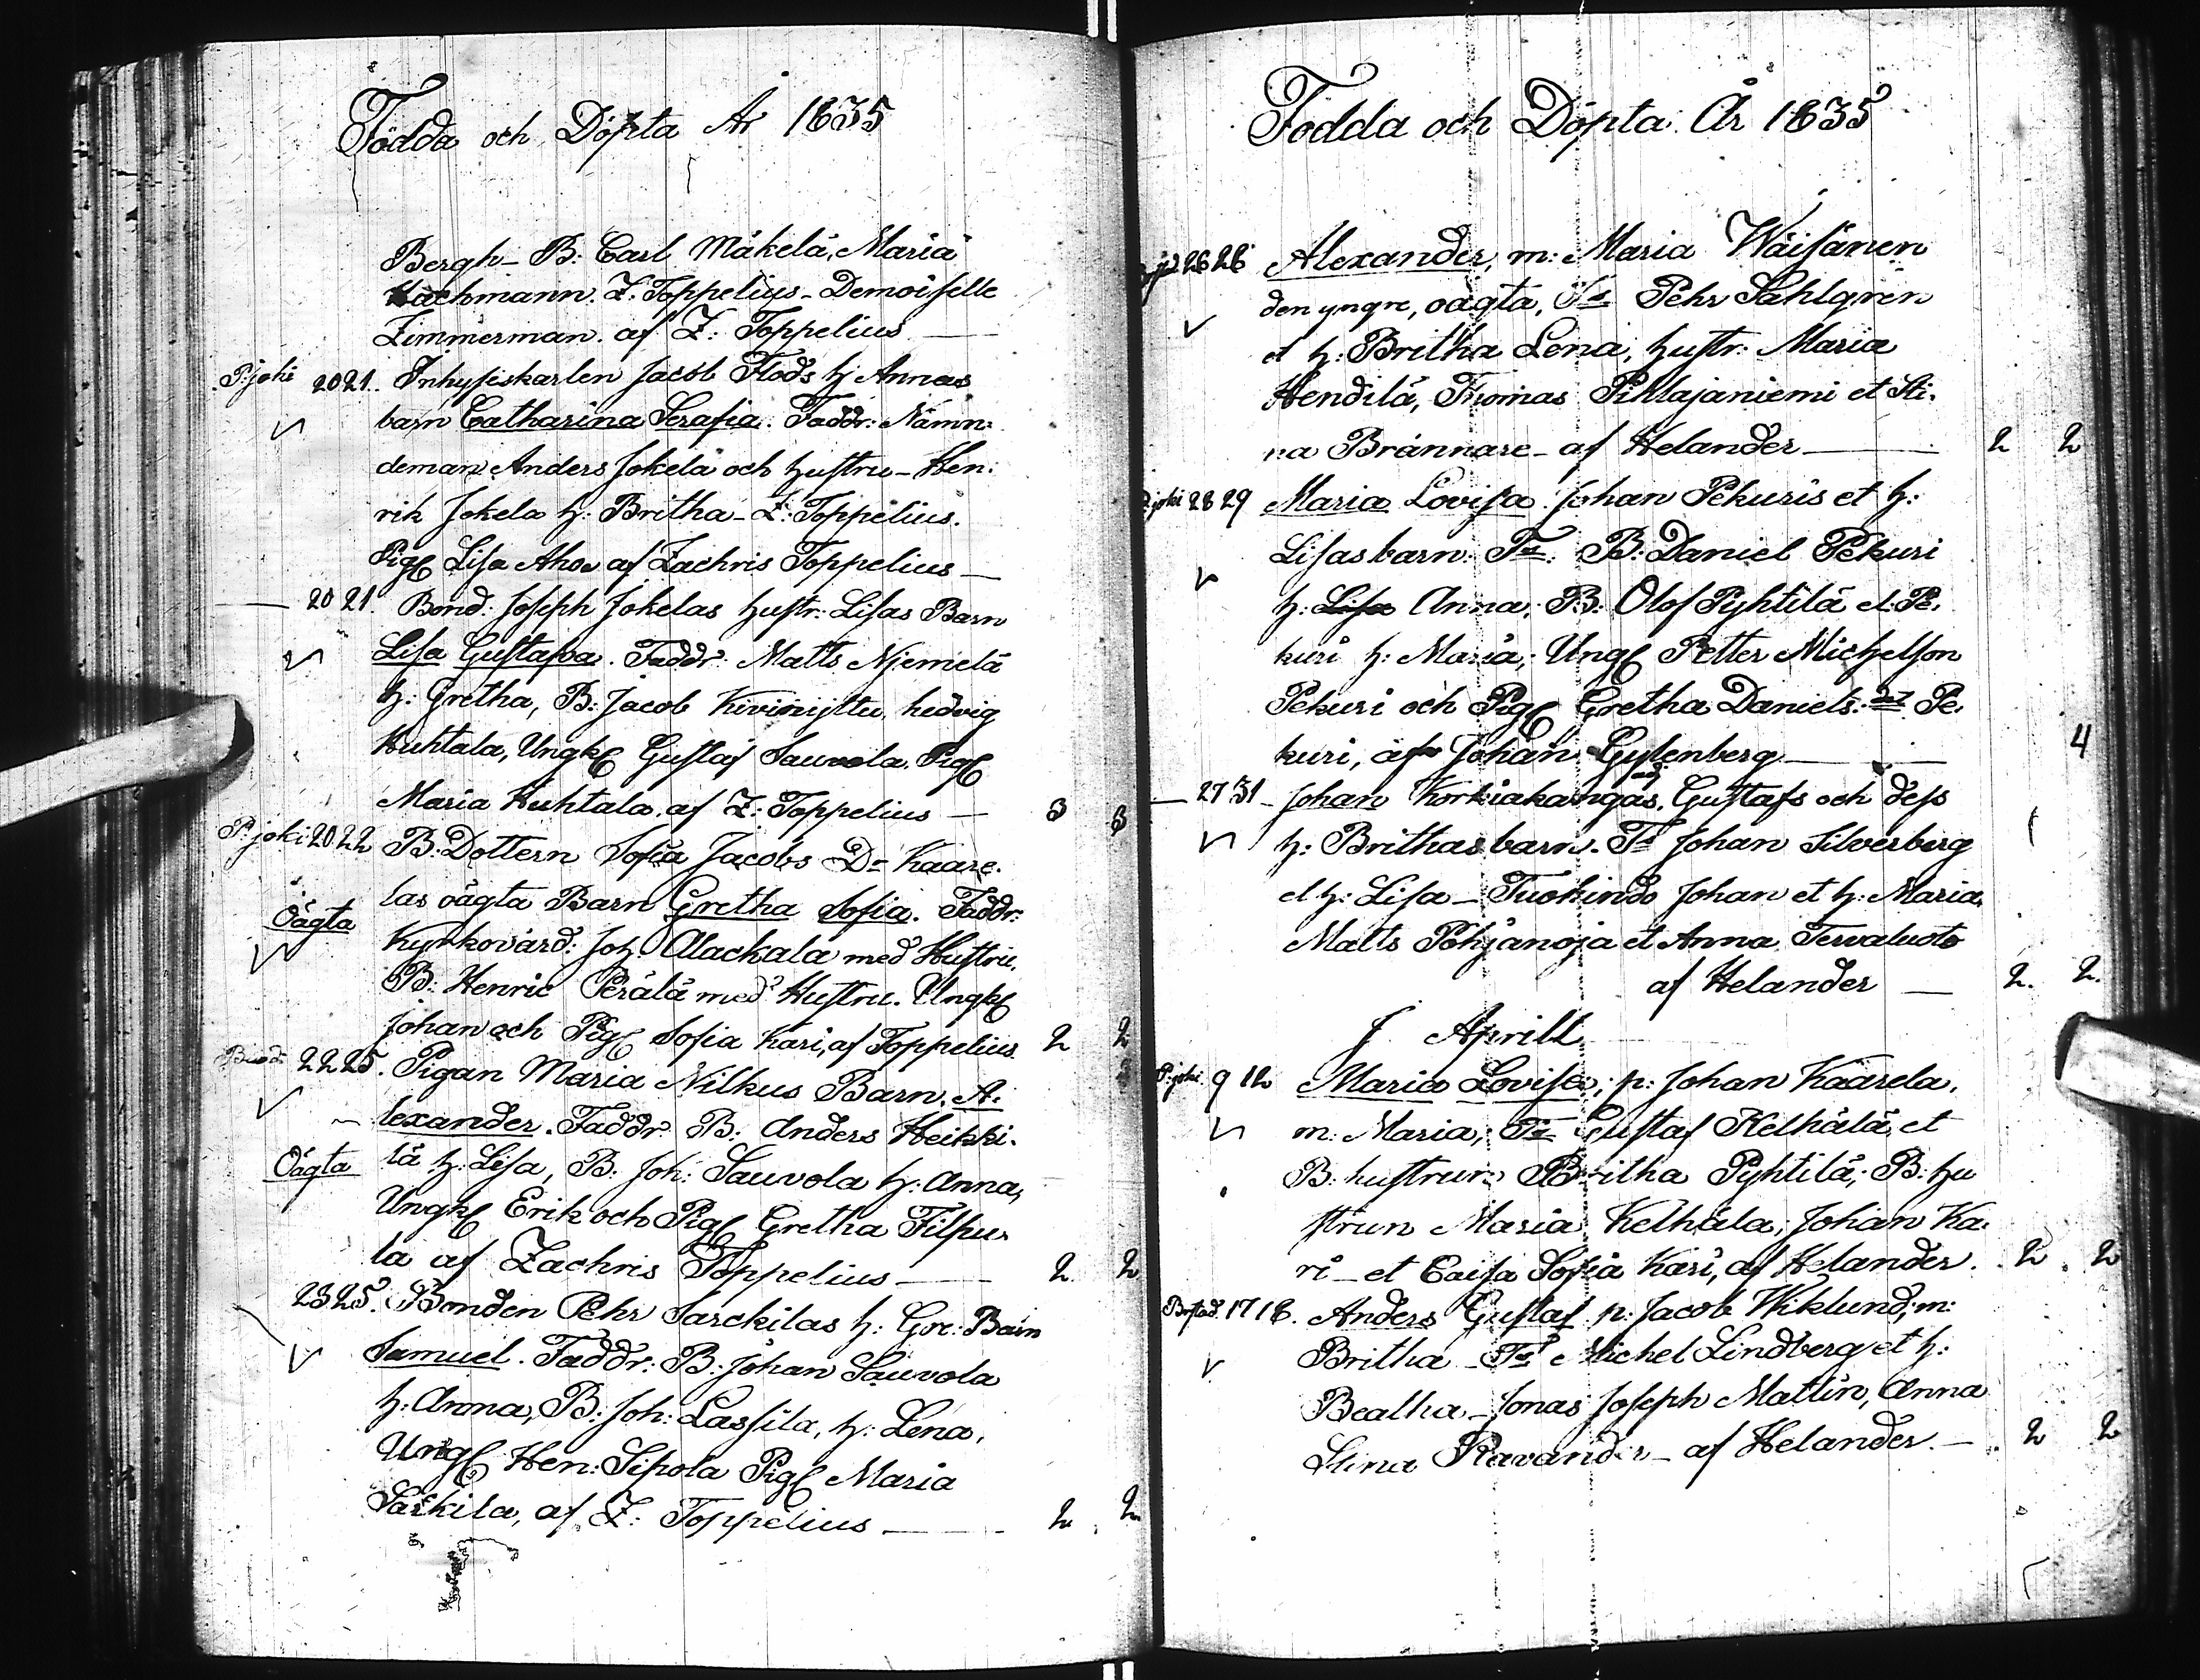 Födda och Döpta År 1835
Bergh_ B: Carl Mäkelä, Maria
Lachmann. Z. Toppelius_ Demoiselle
Zimmerman. af Z: Toppelius
P:joki 20 21. Inhysiskarlen Jacob Flods h. Annas
barn Catharina Serafia. Faddr: Nämn:
deman Anders Jokela och hustru_ Hen:
rik Jokela h: Britha_ Z: Toppelius.
Pig Lisa Aho af Zachris Toppelius _
20 21. Bond: Joseph Jokelas hustr: Lisas Barn
Lisa Gustafva. Faddr: Matts Njemelä
h: Gretha, B: Jacob Kivinijttu, hedvig
Huhtala, Ungk Gustaf Sauvola. Pig
Maria Huhtala. af Z: Toppelius — 3 3
P:joki 20 22 B: Dottern Sofia Jacobs D. Kaare.
las oägta Barn Gretha Sofia. Faddr:
Oägta
Kyrkovärd: Joh. Alackala med Hustru.
B: Henric Perälä med Hustru. Ungk
Johan och Pig Sofia Kari, af Toppelius 2 2
22 25. Pigan Maria Nilkus Barn. A.
lexander. Faddr B: Anders Heikki.
Oägta lä h: Lisa, B: Joh: Sauvola h: Anna,
Ungk Erik och Pig Gretha Filpu
la af Zachris Toppelius — 2 2
23 25. Bonden Pehr Sarckilas h: Gre: Barn
Samuel. Faddr: B: Johan Sauvola
h: Anna, B: Joh: Lassila, h: Lena,
Ungk Hen: Sipola Pig Maria
Särkila, af Z: Toppelius — 2 2
Födda och Döpta År 1835
26 28 Alexander, m: Maria Wäisänen
den yngre, oägta, Fs Pehr Sahlgren
et h: Britha Lena, hustr: Maria
Hendilä, Thomas Pihlajaniemi et Sti.
na Brännare_ af Helander — 2 2
P:joki 28 29 Maria Lovisa Johan Pekuris et h:
Lisas barn: Fs: B: Daniel Pekuri
h: Lisa Anna; B: Olof Pyhtilä et Pe.
kuri h: Maria; Ung Petter Michelson
Pekuri och Pig Gretha Daniels dr Pe.
kuri, af Johan Gylenberg — 4
27 31 Johan Korkiakangas, Gustafs och dess
h: Brithas barn. Fs Johan Silverberg
et h: Lisa_ Tuohindo Johan et h: Maria.
Matts Pohjanoja et Anna Tervaluoto
af Helander — 2. 2.
Aprill
P:joki 9 12 Maria Lovisa; p: Johan Kaarela,
m: Maria; Fs Gustaf Kelhälä et
B: hustrun Britha Pyhtilä; B: hu
strun Maria Kelhäla; Johan Ka.
ri_ et Caisa Sofia Kari, af Helander. 2 2
17 18. Anders Gustaf p: Jacob Wiklund; m:
Britha_ Fs Michel Lindberg et h:
Beatha_ Jonas Joseph Matlin, Anna
Stina Ravander_ af Helander. — 2 2